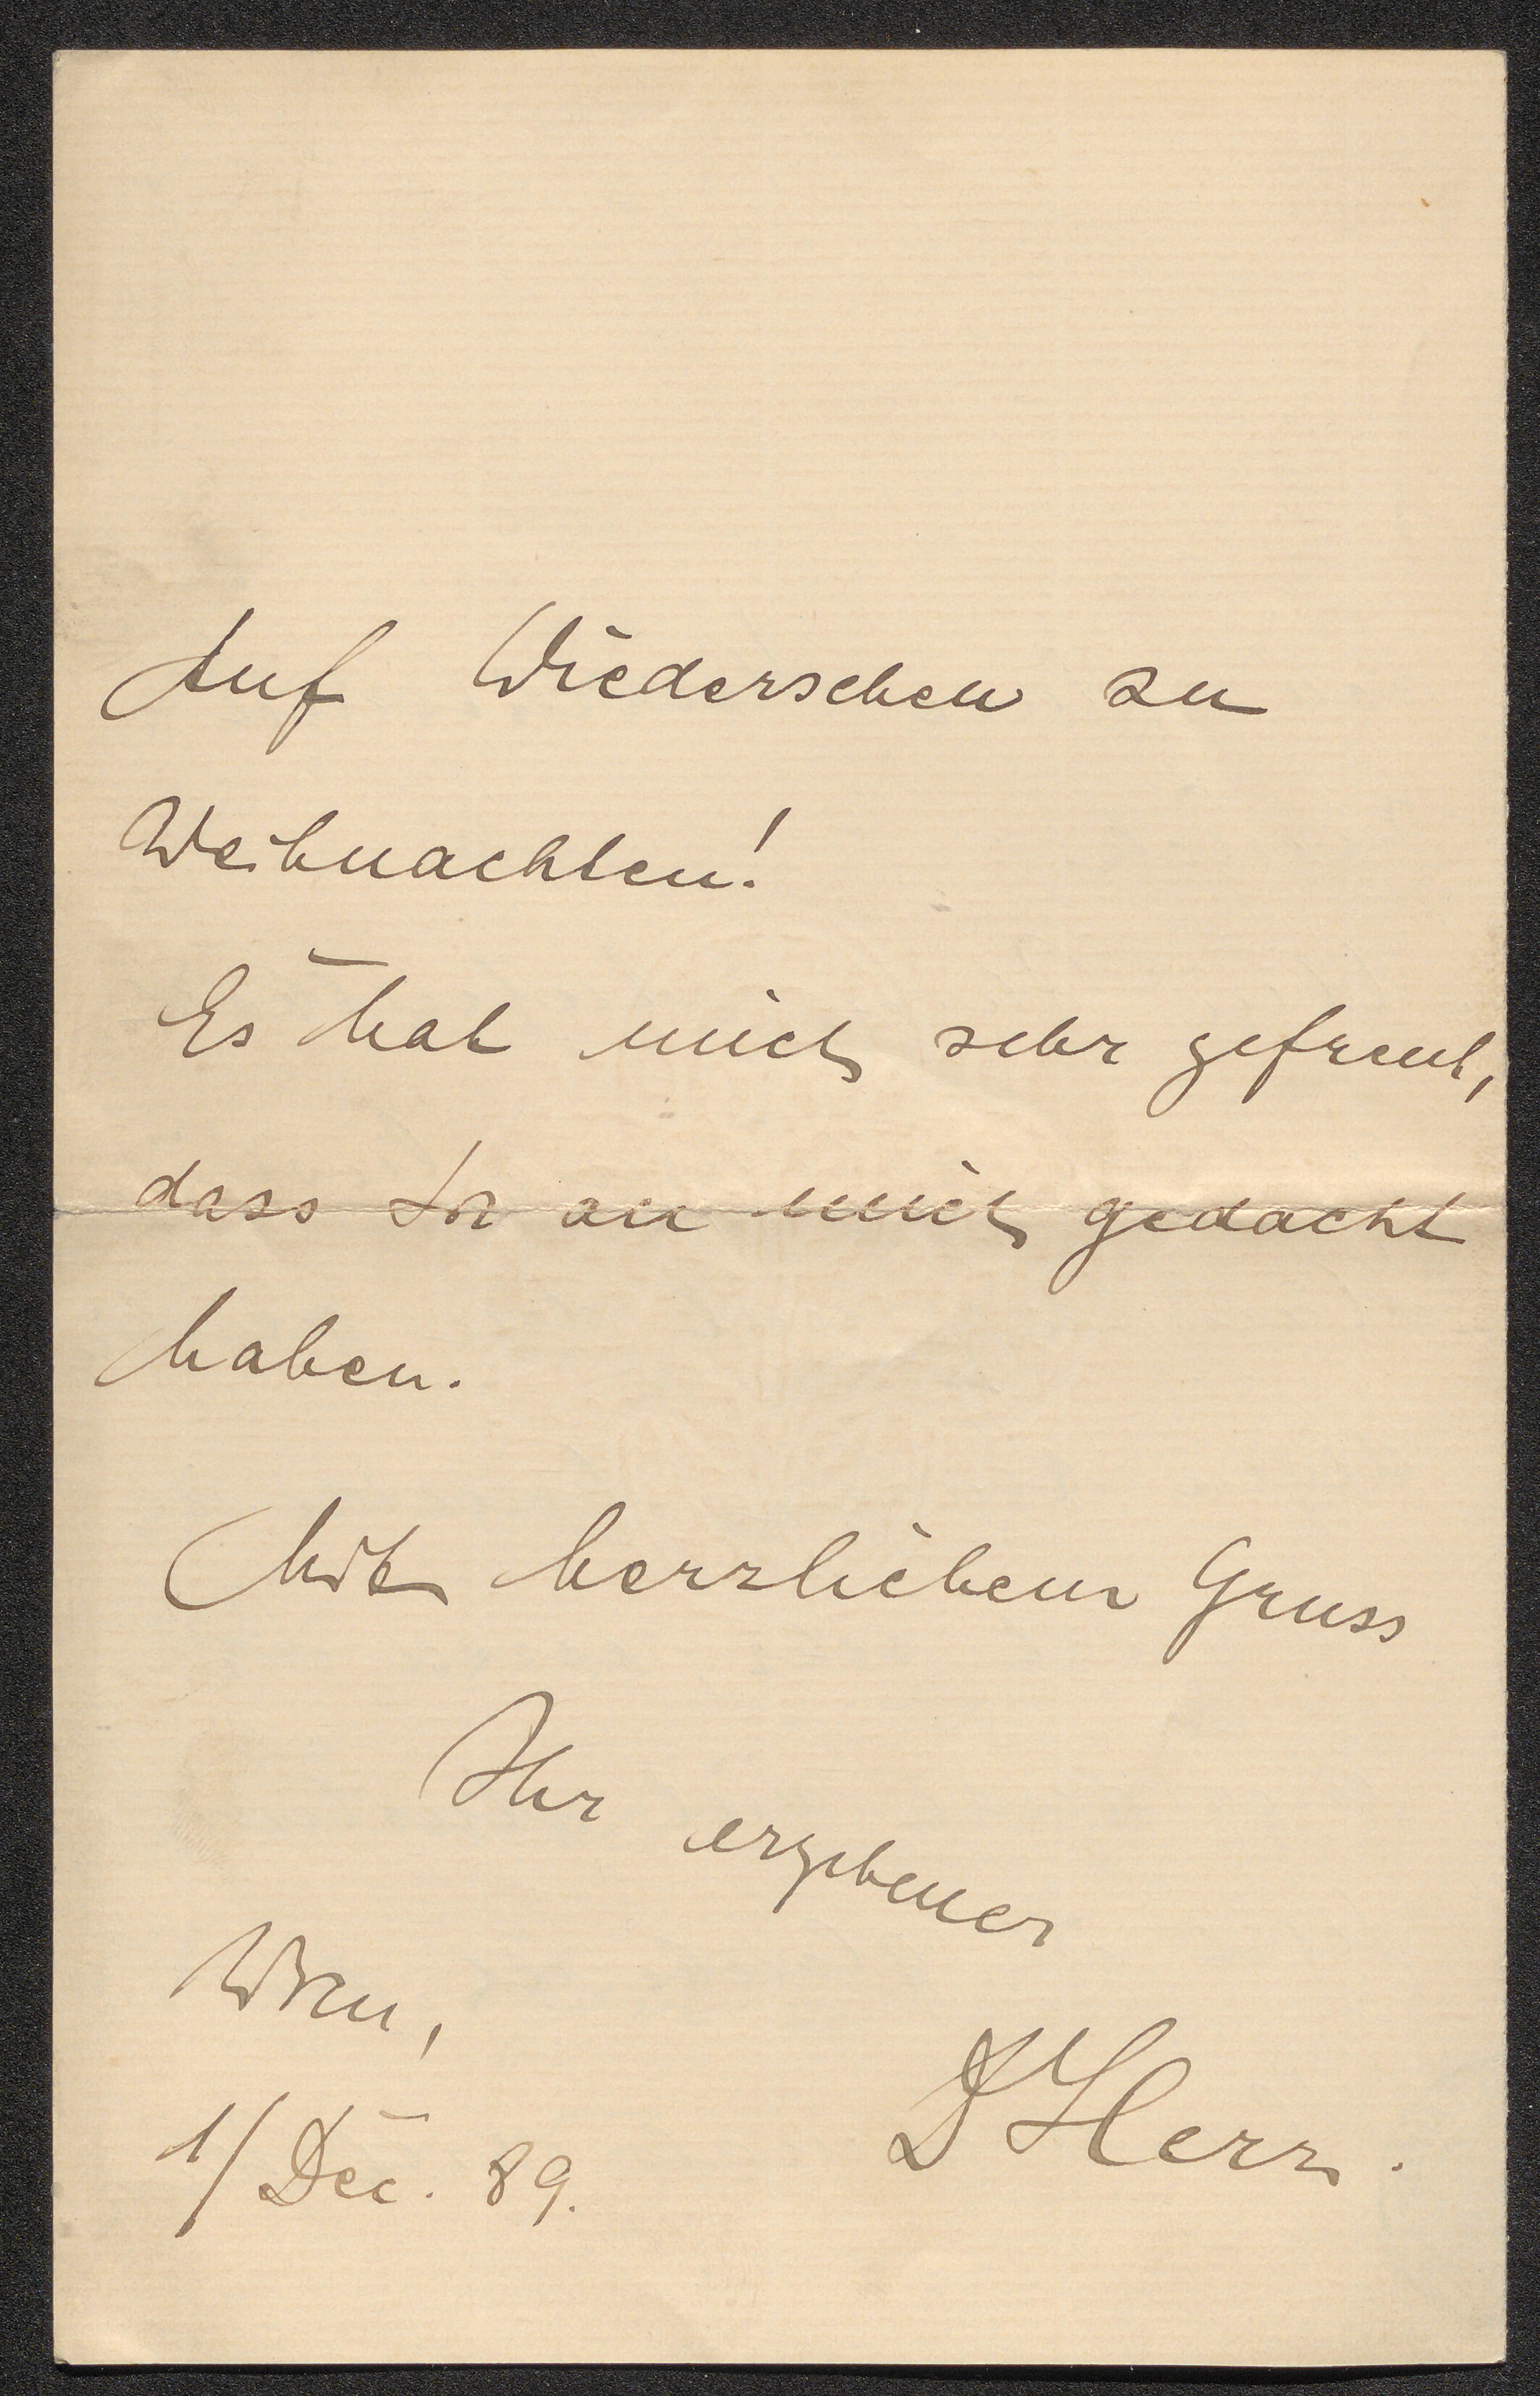 Auf Wiedersehen zu
Weihnachten!
Es hat mich sehr gefreut,
dass Sie an mich gedacht
haben.
Mit herzlichem Gruss
Ihr ergebener
Wien,
DHerz.
1/Dec. 89.